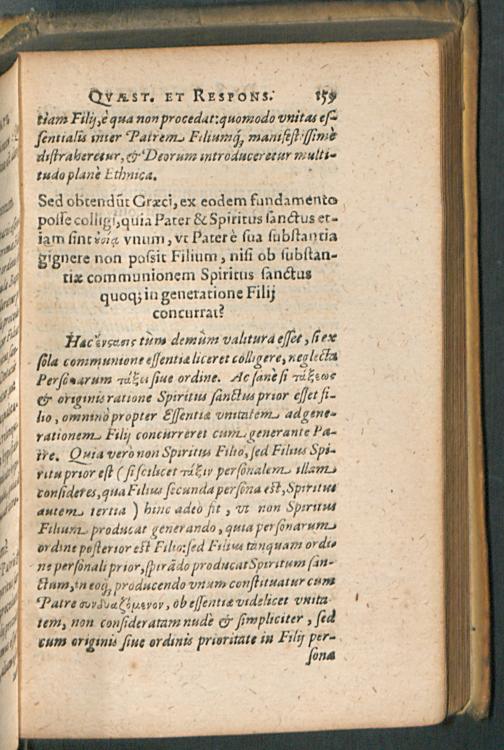 QVÆST. ET RESPONS. 159
tiam Filij, è qua non procedat: quomodo vnitas es-
sentialis inter Patrem Filiumq́, manifestissimè
distraheretur, & Deorum introduceretur multi-
tudo planè Ethnica.
Sed obtendūt Græci, ex eodem fundamento
posse colligi, quia Pater & Spiritus sanctus et-
iam sint οὐσίᾳ vnum, vt Pater è sua substantia
gignere non possit Filium, nisi ob substan-
tiæ communionem Spiritus sanctus
quoq; in generatione Filij
concurrat?
Hæc ἔνστασις tùm demùm valitura esset, si ex
sola communione essentiæ liceret colligere, neglecta
Personarum τάξει siue ordine. Ac sanè si τάξεως
& originis ratione Spiritus sanctus prior esset fi-
lio, omninò propter Essentiæ vnitatem ad gene-
rationem Filij concurreret cum generante Pa-
tre. Quia verò non Spiritus Filio, sed Filius Spi-
ritu prior est (si scilicet τάξιν personalem illam
consideres, qua Filius secunda persona est, Spiritus
autem tertia) hinc adeò fit, vt non Spiritus
Filium producat generando, quia personarum
ordine posterior est Filio: sed Filius tanquam ordi-
ne personali prior, spirādo producat Spiritum san-
ctum, in eoq́, producendo vnum constituatur cum
Patre συνδυαζόμενον, ob essentiæ videlicet vnita-
tem, non consideratam nudè & simpliciter, sed
cum originis siue ordinis prioritate in Filij per-
sona